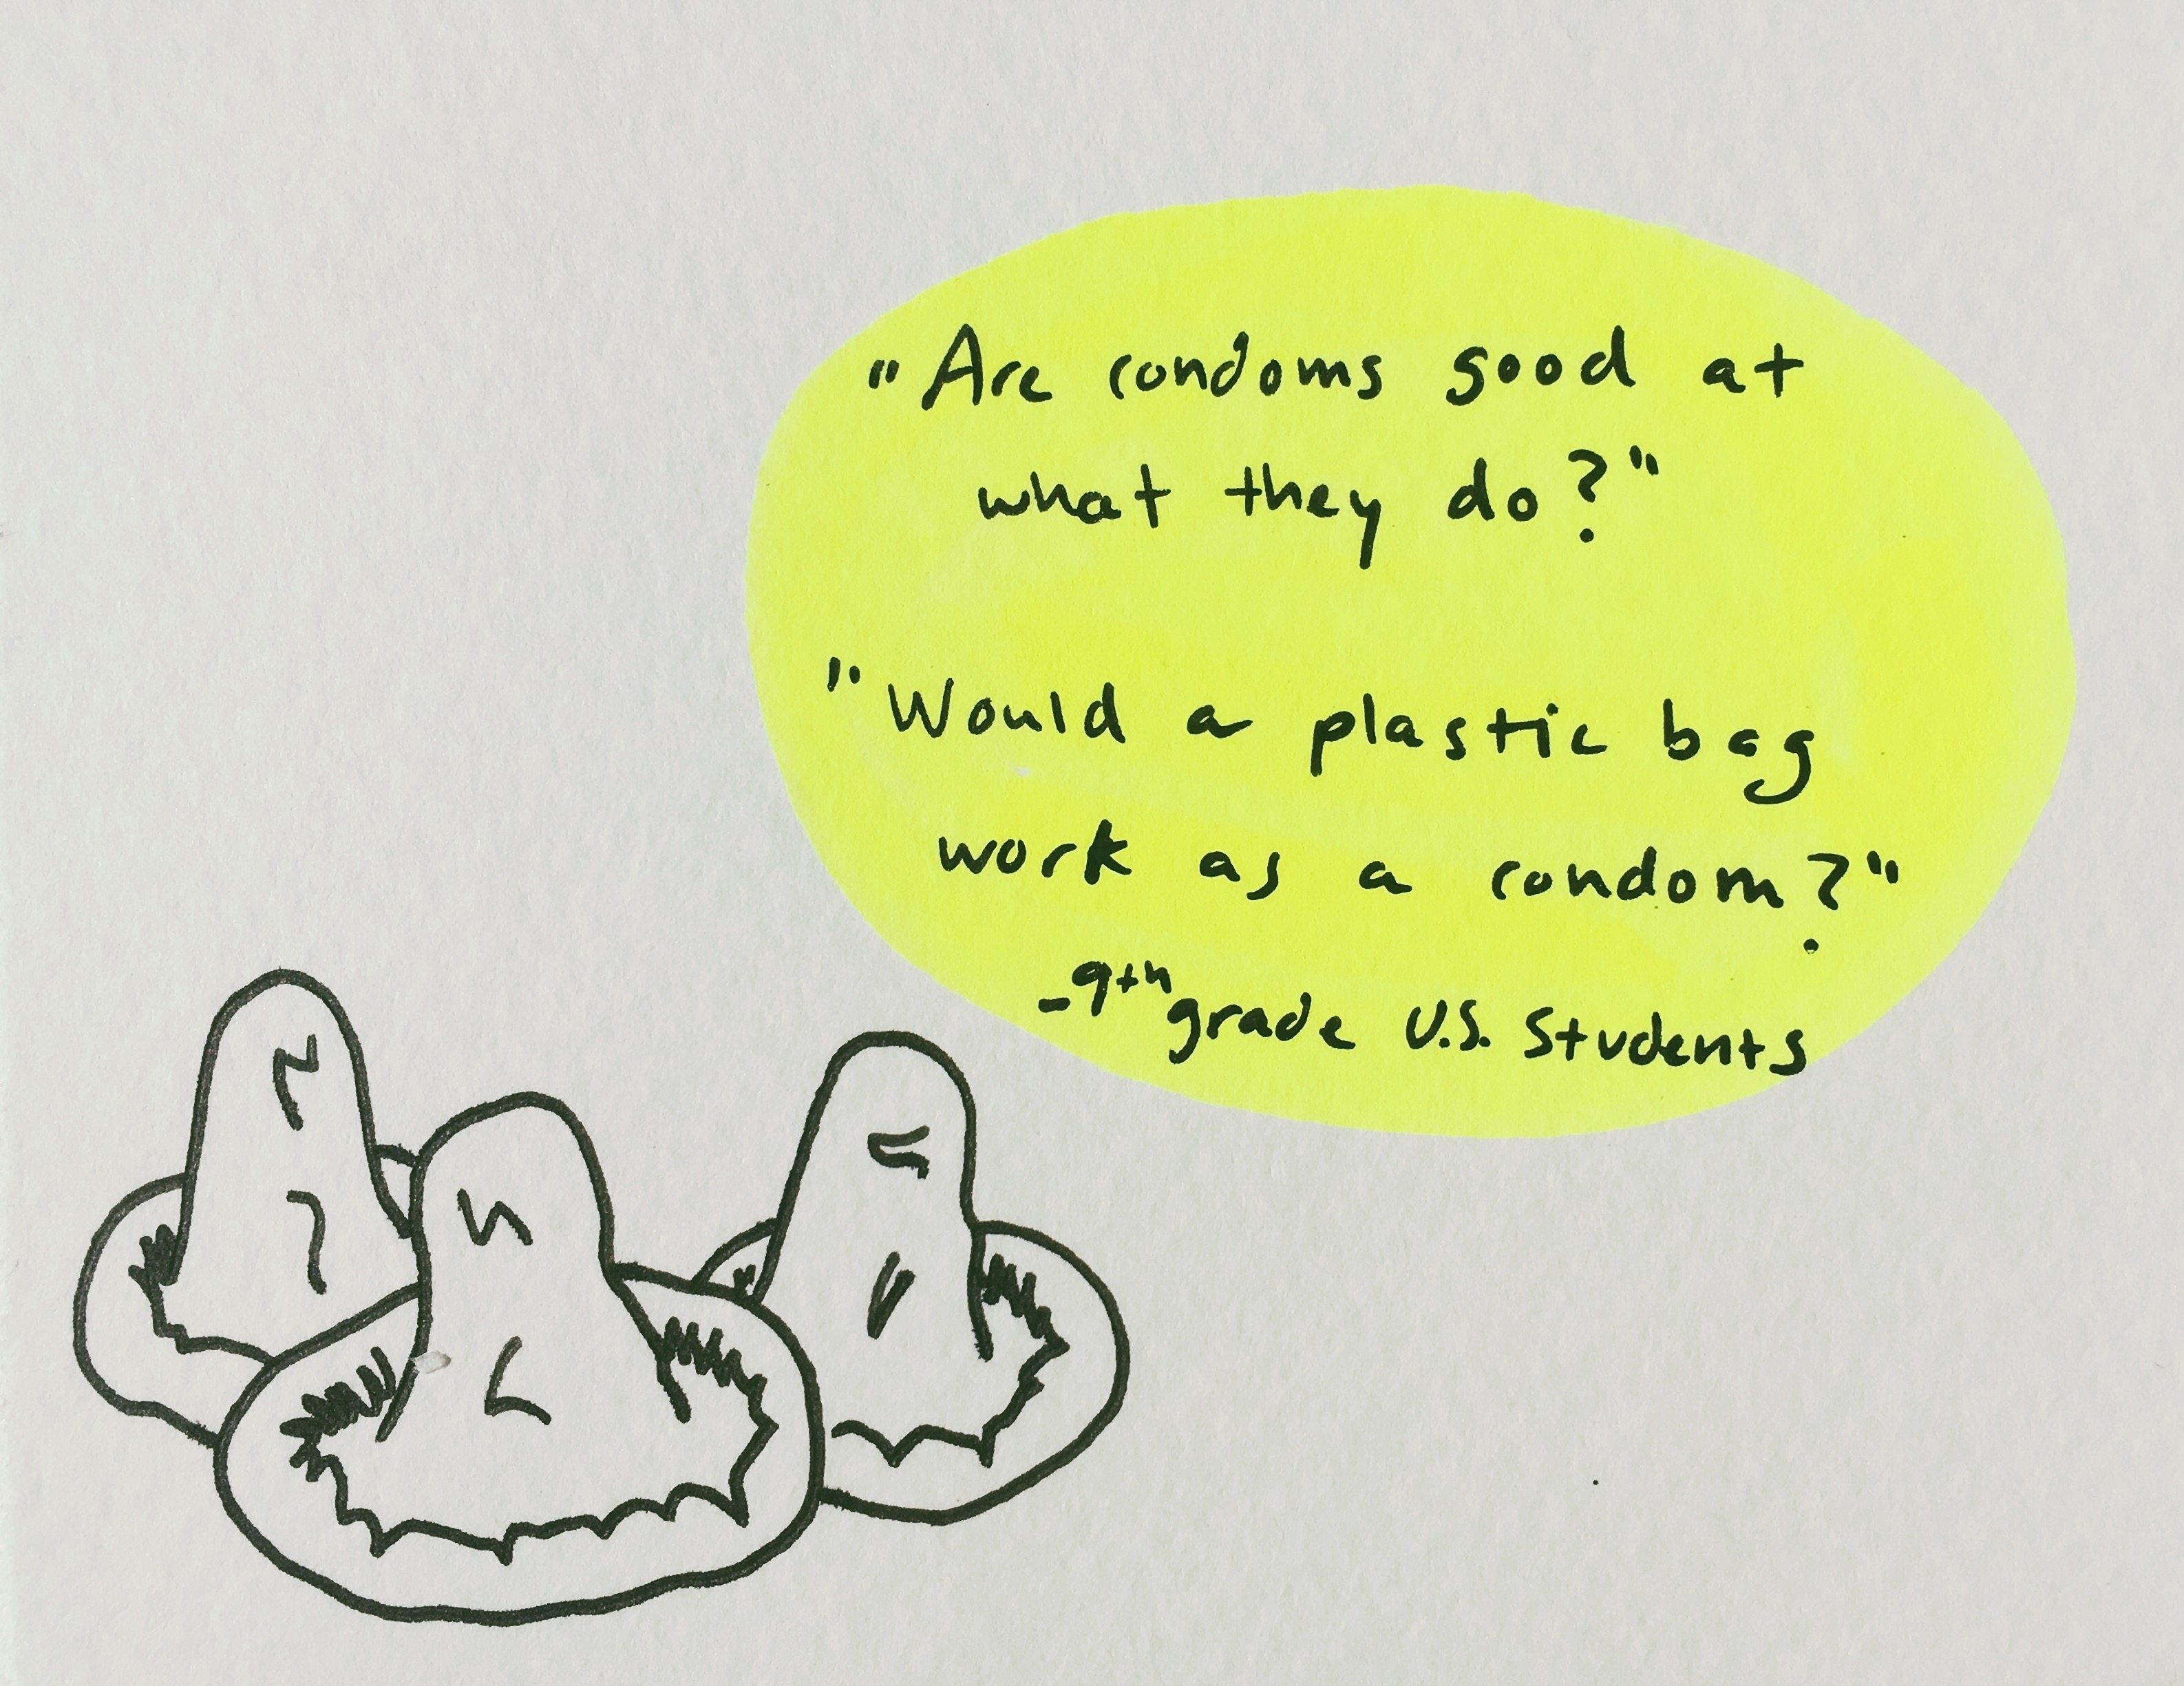 "Are condoms good at
what they do?"
"Would a plastic bag
work as a condom?"
-9th grade U.S. Students